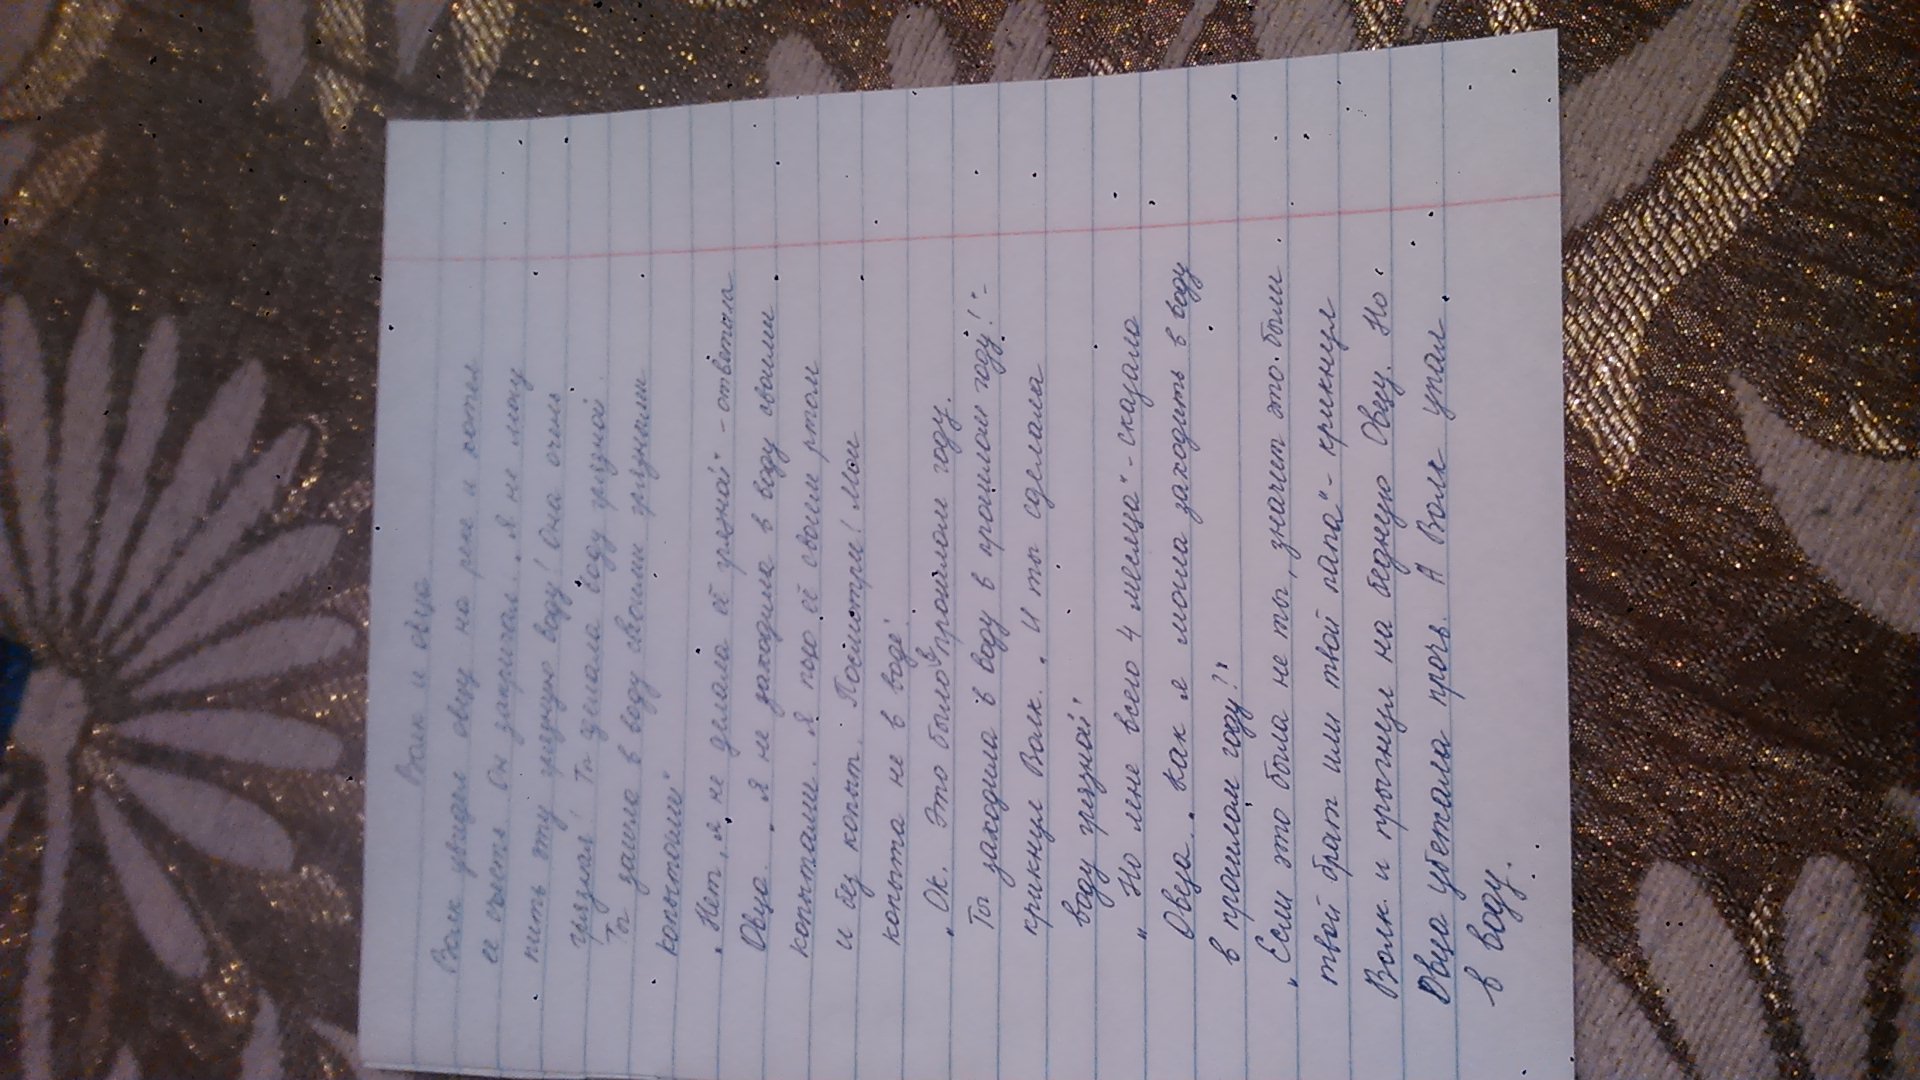 Волк и овца
Волк увидел овцу на реке и хотел
её съесть. Он закричал. „Я не могу
пить эту грязную воду! Она очень
грязная! Ты сделала воду грязной.
Ты зашла в воду своими грязными
копытами"
„Нет, я не делала её грязной" - ответила
Овца. „Я не заходила в воду своими
копытами. Я пью её своим ртом
и без копыт. Посмотри! Мои
копыта не в воде".
„Ок. Это было в прошлом году.
Ты заходила в воду в прошлом году!" -
крикнул Волк. „И ты сделала
воду грязной"
„Но мне всего 4 месяца" - сказала
Овца. „Как я могла заходить в воду
в прошлом году?"
„Если это была не ты, значит это были
твой брат или твой папа" - крикнул
Волк и прыгнул на бедную Овцу. Но
Овца убежала прочь. А Волк упал
в воду.